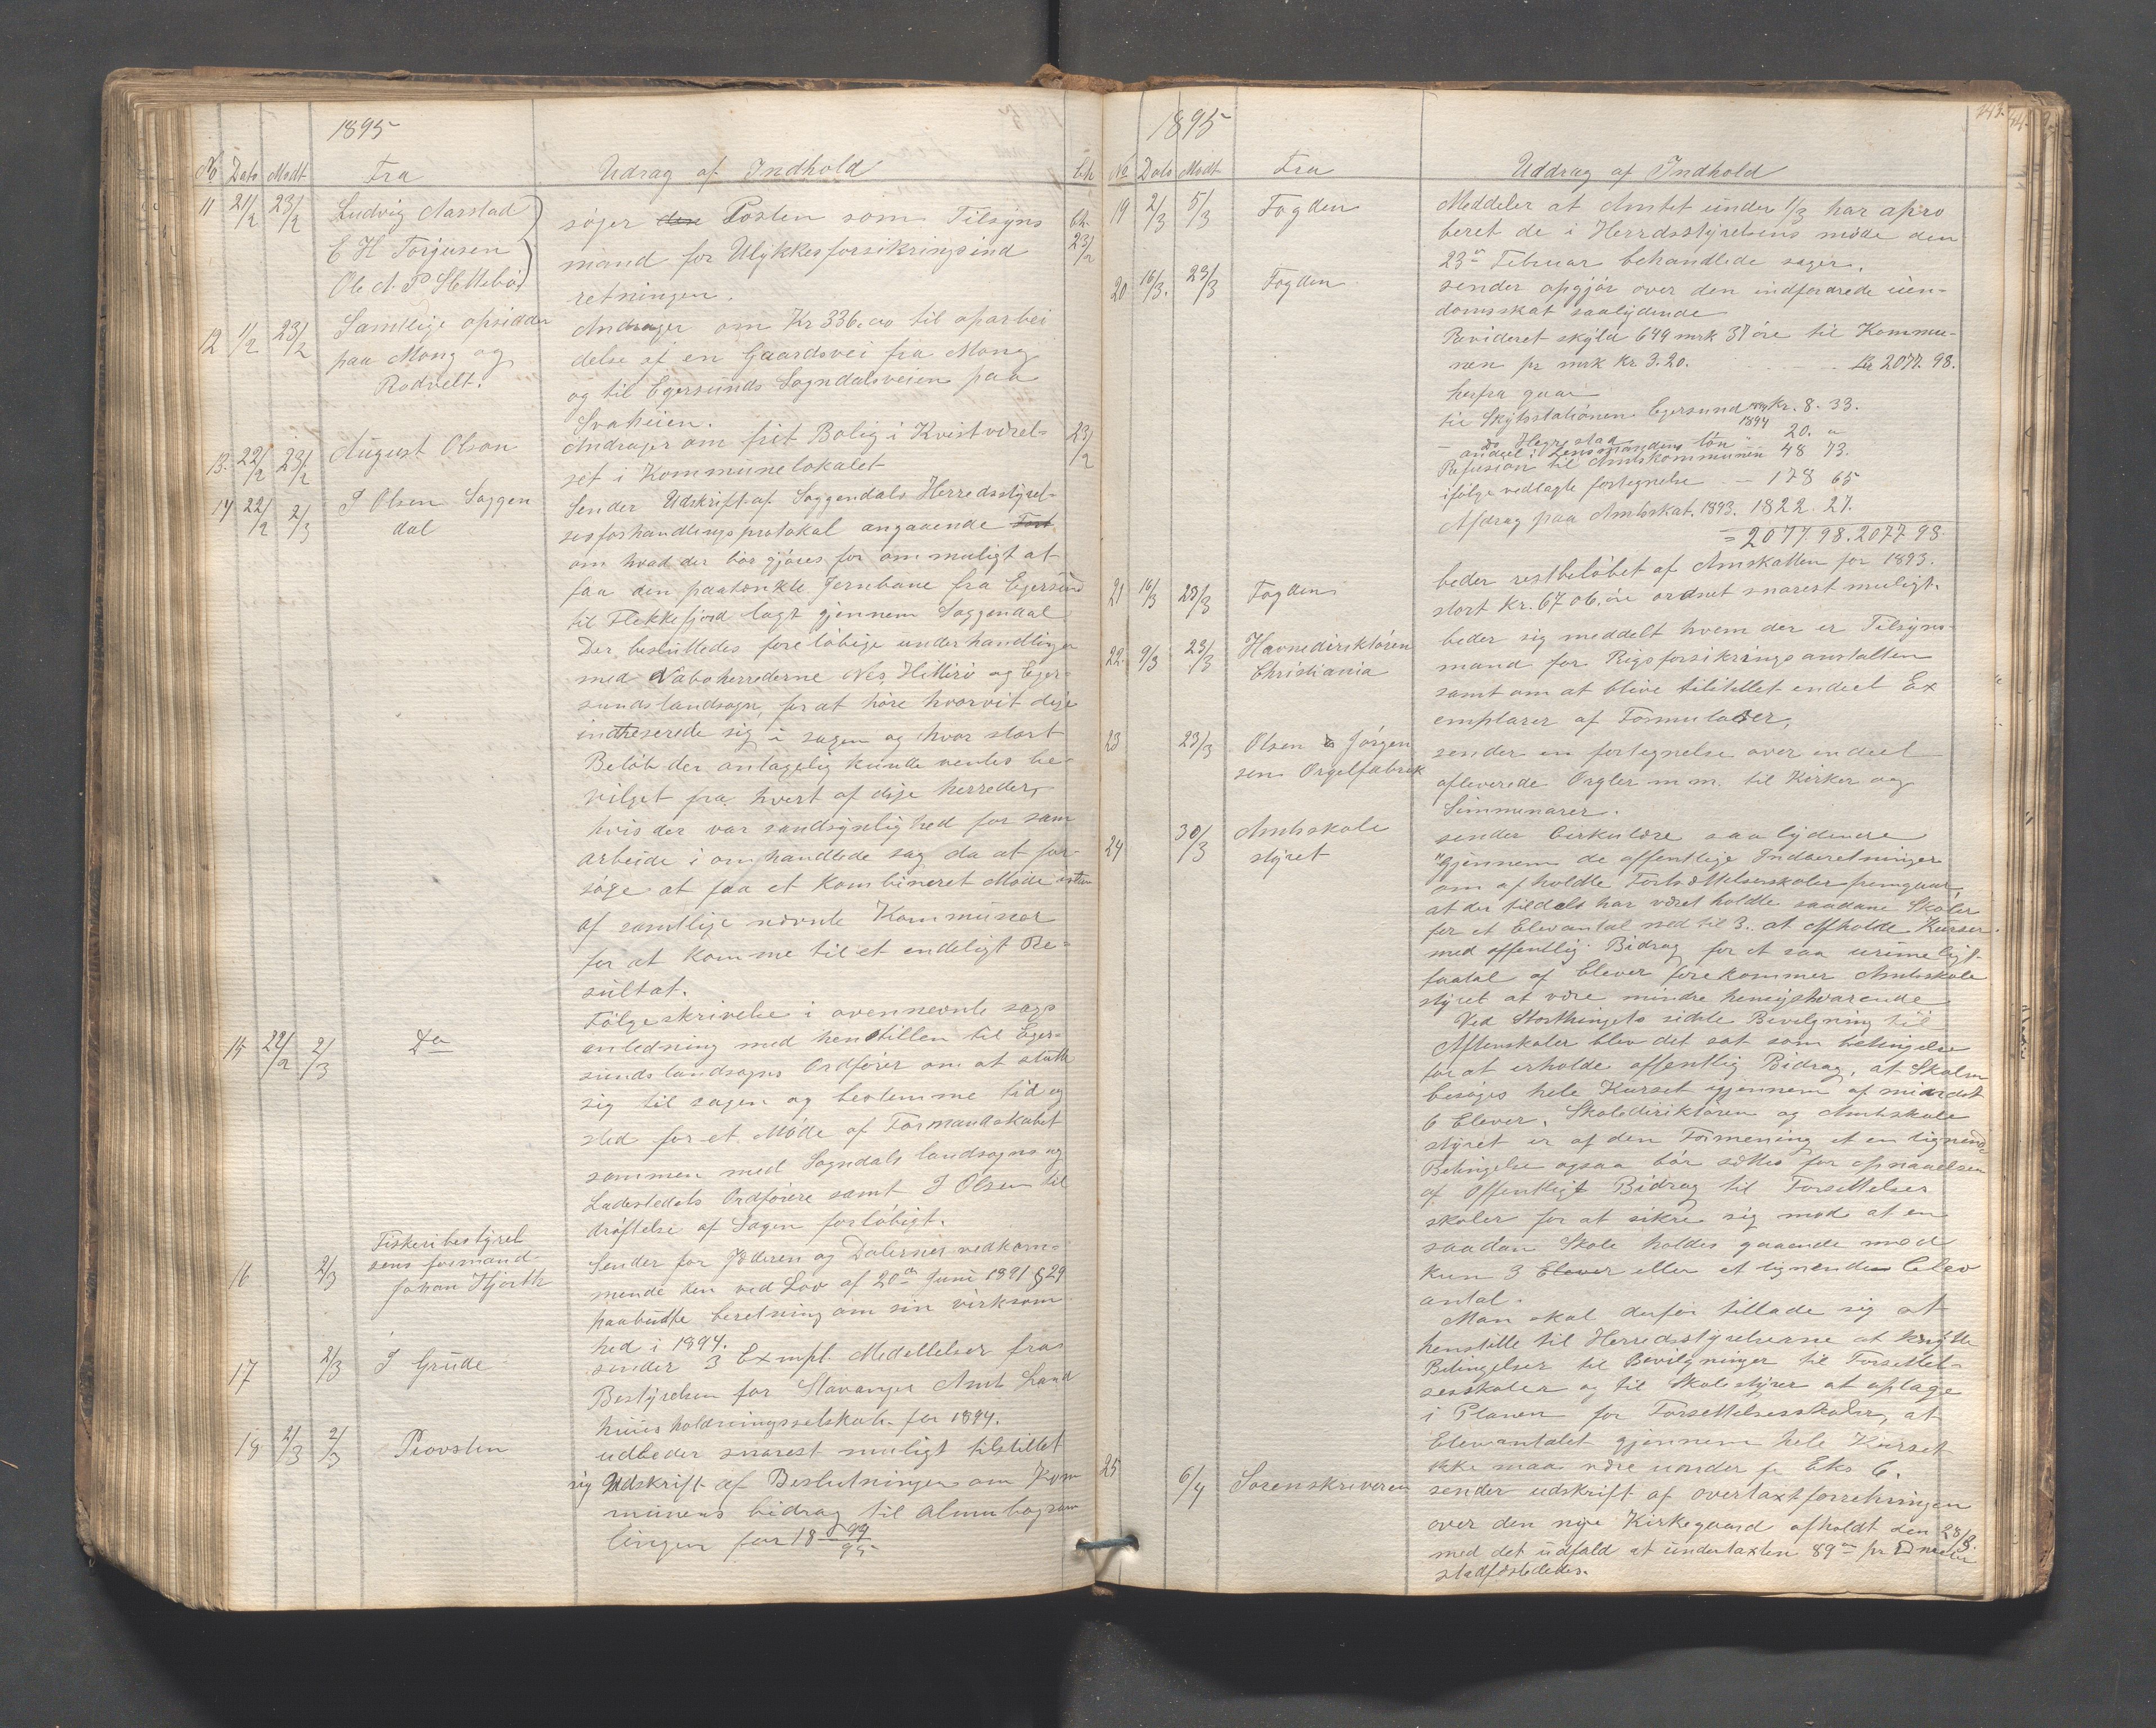 1895
No Dato Modt Fra Udrag af Indhold
11 21/2 23/2 Ludvig Aarstad
E H Torgersen
Ole A. P Slettebö
söger den Posten som Tilsyns Ch.
mand for Ulykkesforsikringsind 23/2
retningen.
12 1/2 23/2 Samtlige opsidder
paa Mong og
Rodvelt.
Andrager om Kr 336.00 til oparbei
delse af en Gaardsvei fra Mong
og til Egersunds Sogndalsveien paa
Svaheien.
13. 22/2 23/2 August Olson Andrager om frit Bolig i Kvistværel- 23/2
set i Kommunelokalet
14 22/2 2/3 J Olsen Soggen
dal
Sender Udskrift af Soggendals Herredsstyrel-
sesforhandlingsprotokal angaaende Fort
om hvad der bör gjöres for om muligt at
faa den paatænkte Jernbane fra Egersund
til Flekkefjord lagt gjennem Soggendal
Der besluttedes foreløbige underhandlinger
med Naboherrederne Nes, Hitterö og Eger-
sunds landsogn, for at höre hvorvit disse
indtreserede sig i sagen og hvor stort
Belöb der antagelig kunde ventes be-
vilget fra hvert af disse herreder,
hvis der var sandsynlighed for sam
arbeide i omhandlede sag da at for-
söge at faa et Kombineret Möde
af samtlige nævnte Kommuner
for at komme til et endeligt Re-
sultat.
15 22/2 2/3 Do Fölgeskrivelse i ovennevnte sags
anledning med henstillen til Eger-
sunds landsogns Ordförer om at slutte
sig til sagen og bestemme tid og
sted for et Möde af Formandskabet
sammen med Sogndals landsogns og
Ladestedets Ordförere samt J Olsen til
dröftelse af Sagen forlöbigt.
16 2/3 Fiskeribestyrel
sens formand
Johan Hjorth
Sender for Jæderen og Dalernes vedkom-
mende den ved Lov af 20de Juni 1891 § 29
paabudte beretning om sin virksom
hed i 1894.
17 2/3 J Grude sender 3 Exmpl. Medellelser fra
Bestyrelsen for Stavanger Amt Land
huusholdningsselskab for 1894.
18 2/3 2/3 Provsten udbeder snarest muligt tilstillet
sig Udskrift af Beslutningen om Kom
munens bidrag til Almubogsam
lingen for 18 94/95
143.
1895
No Dato Modt Fra Uddrag af Indhold
19 2/3 5/3 Fogden Meddeler at Amtet under 1/3 har apro
beret de i Herrdsstyrelsens möde den
23de Februar behandlede sager.
20 16/3. 23/3 Fogden sender opgjör over den indfordrede eien-
domsskat saalydende
Revideret skyld 649 mrk 37 öre til Kommu-
nen pr mrk Kr. 3.20. Kr 2077. 98.
herfra gaar
til Skydsstationen Egersund 1894 Kr. 8. 33.
- do Hegrestad 1894 20. "
andeel i Lensmandens lön " 48 73.
Refusion til Amtskommunen
ifölge vedlagte fortegnelse - 178 65
Afdrag paa Amtsskat. 1893. 1822. 27.
= 2077. 98. 2077 98.
21 16/3 23/3 Fogden beder restbelöbet af Amskatten for 1893.
stort Kr. 67 06. öre ordnet snarest muligt.
22. 9/3 23/3 Havnedirektören
Christiania
beder sig meddelt hvem der er Tilsyns-
mand for Rigsforsikringsanstalten
samt om at blive tilstillet endeel Ex
emplarer af Formularer,
23 23/3 Olsen & Jörgen
sen Orgelfabrek
sender en fortegnelse over endeel
afleverede Orgler m m. til Kirker og
Simmenarer.
24 30/3 Amtsskole
styret
sender Cirkulære saalydende
"Gjennem de offentlige Indberetninger
om afholdte Fortsættelsesskoler fremgaar,
at der tildels har været holdte saadane Skoler
for et Elevantal ned til 3. at Afholde Kurser
med offentlig Bidrag for et saa urimeligt
faatal af Elever forekommer Amtsskole
styret at være mindre hensigtsvarende
Ved Storthingets sidste Bevilgning til
Aftenskoler blev det sat som betingelse
for at erholde offentlig Bidrag, at Skolen
besöges hele Kurset igjennem af mindst
6 Elever. Skoledirektören og Amtsskole
styret er af den Formening at en lignende
Betingelse ogsaa bör sættes for opnaaelsen
af Offentligt Bidrag til Forsettelses
skoler for at sikre sig mod at en
saadan Skole holdes gaaende med
kun 3 Elever eller et lignende Elev
antal.
Man skal derfor tillade sig at
henstille til Herredsstyrelserne at knytte
Betingelser til Bevilgninger til Forsettel-
sesskoler og til Skolestyrer at optage
i Planen for Forsettelsesskoler, at
Elevantalet gjennem hele Kurset
ikke maa være under f. Eks 6.
25 6/4 Sorenskriveren sender udskrift af overtaxtforretningen
over den nye Kirkegaard afholdt den 28/3.
med det udfald at undertaxten 89 pr meter
stadfæstedes.